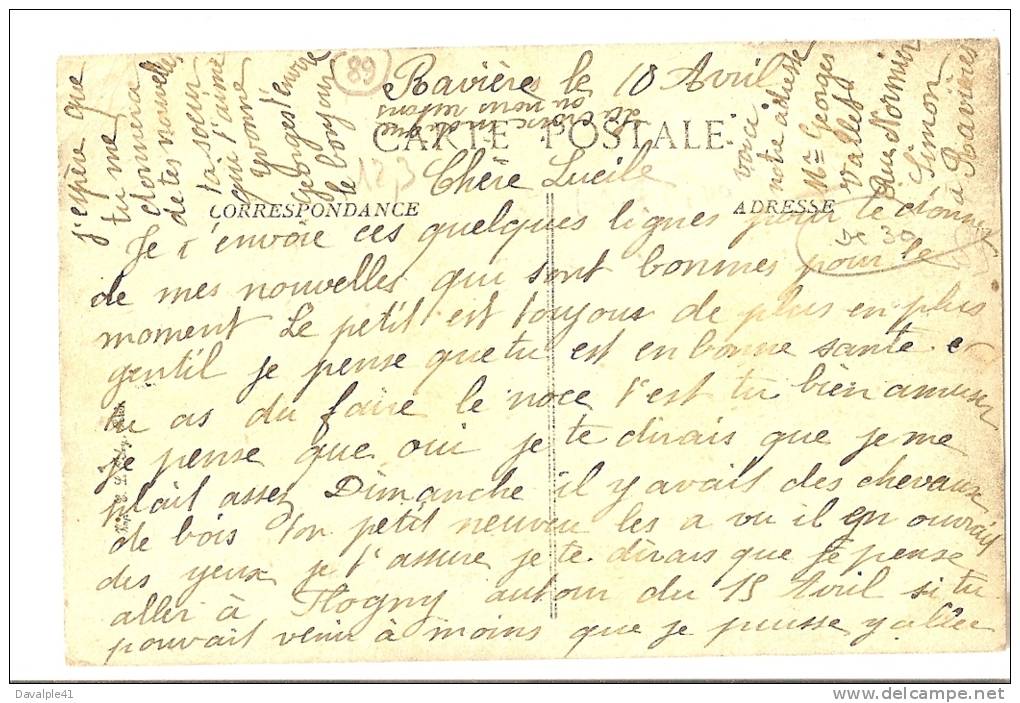 Ravières le 18 Avril
89
CARTE POSTALE
123
Chère Lucile
CORRESPONDANCE
ADRESSE
Je t'envoie ces quelques lignes pour te donner
de mes nouvelles qui sont bonnes pour le
moment Le petit est toujours de plus en plus
gentil je pense que tu est en bonne santé et
tu as du faire le noce t'est tu bien amuser
je pense que oui je te dirais que je me
plait assez Dimanche il y avait des chevaux
de bois ton petit neuveu les a vu il en ouvrait
des yeux je t'assure je te dirais que je pense
aller à Flogny autour du 15 Avril si tu
pouvait venir à moins que je puisse y aller
j'espère que
tu me
donnera
de tes nouvelles
ta sœur
qui t'aime
Yvonne
Georges t'envoie
le bonjour
voici
notre adresse
Mr Georges
Vallet
Rue Normier
Simon
à Ravières
30
Davalple41
http://www.delcampe.net